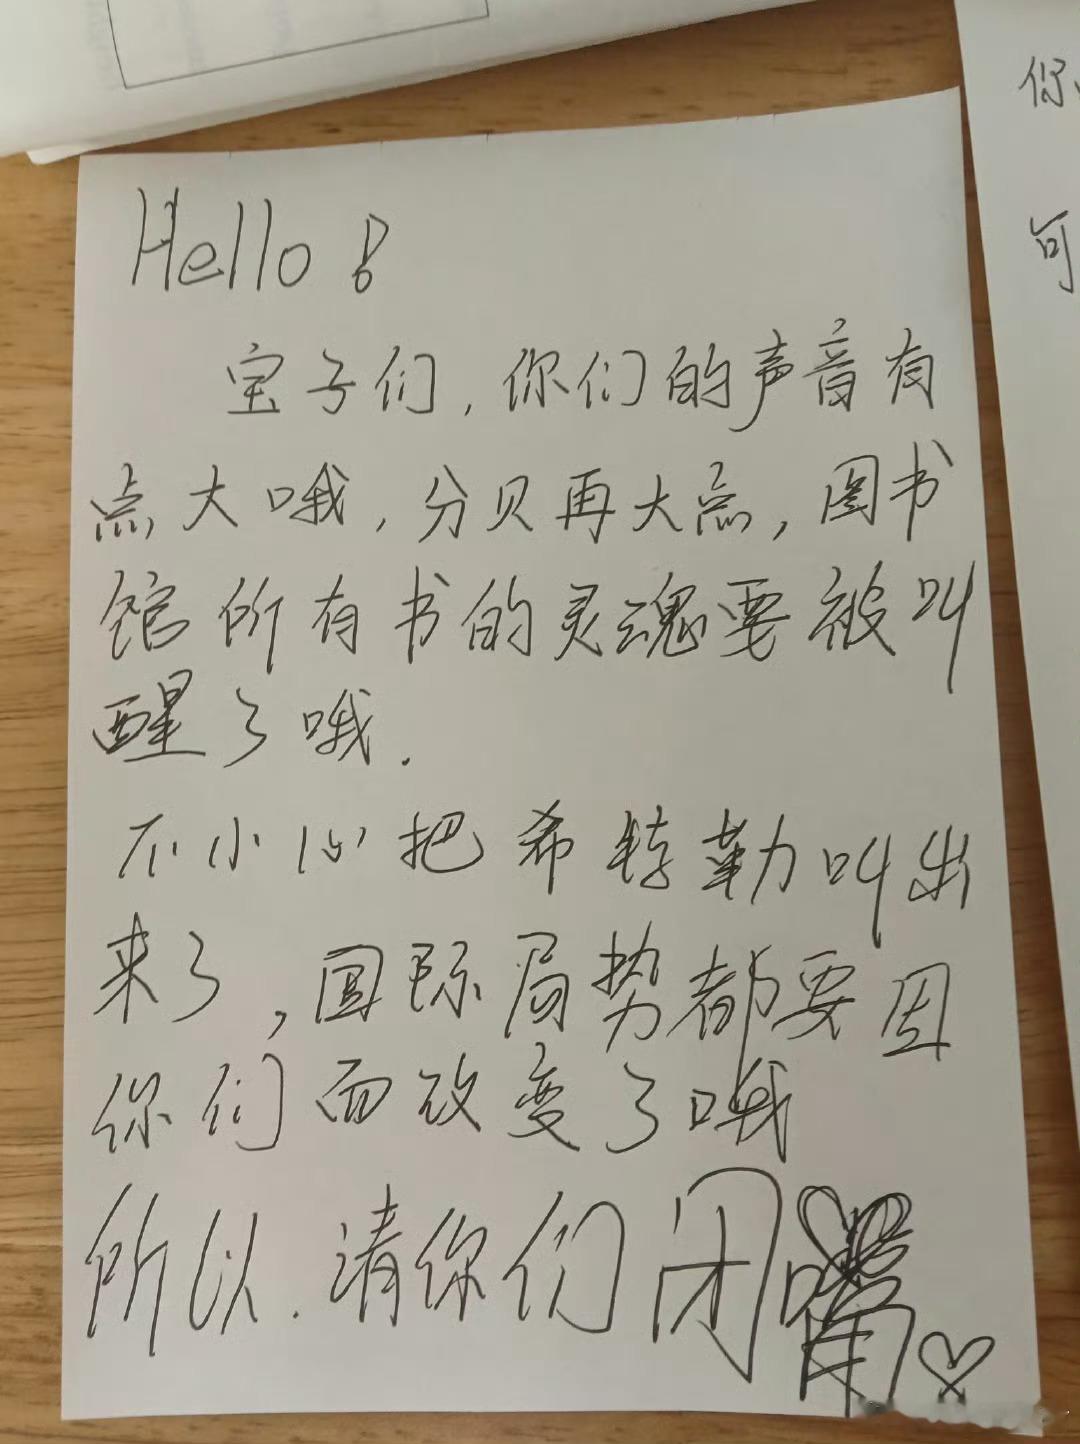 Hello!
宝子们,你们的声音有
点大哦,分贝再大点,图书
馆所有书的灵魂要被叫
醒了哦.
不小心把希特勒叫出
来了,国际局势都要因
你们而改变了哦
所以.请你们闭嘴
你
可